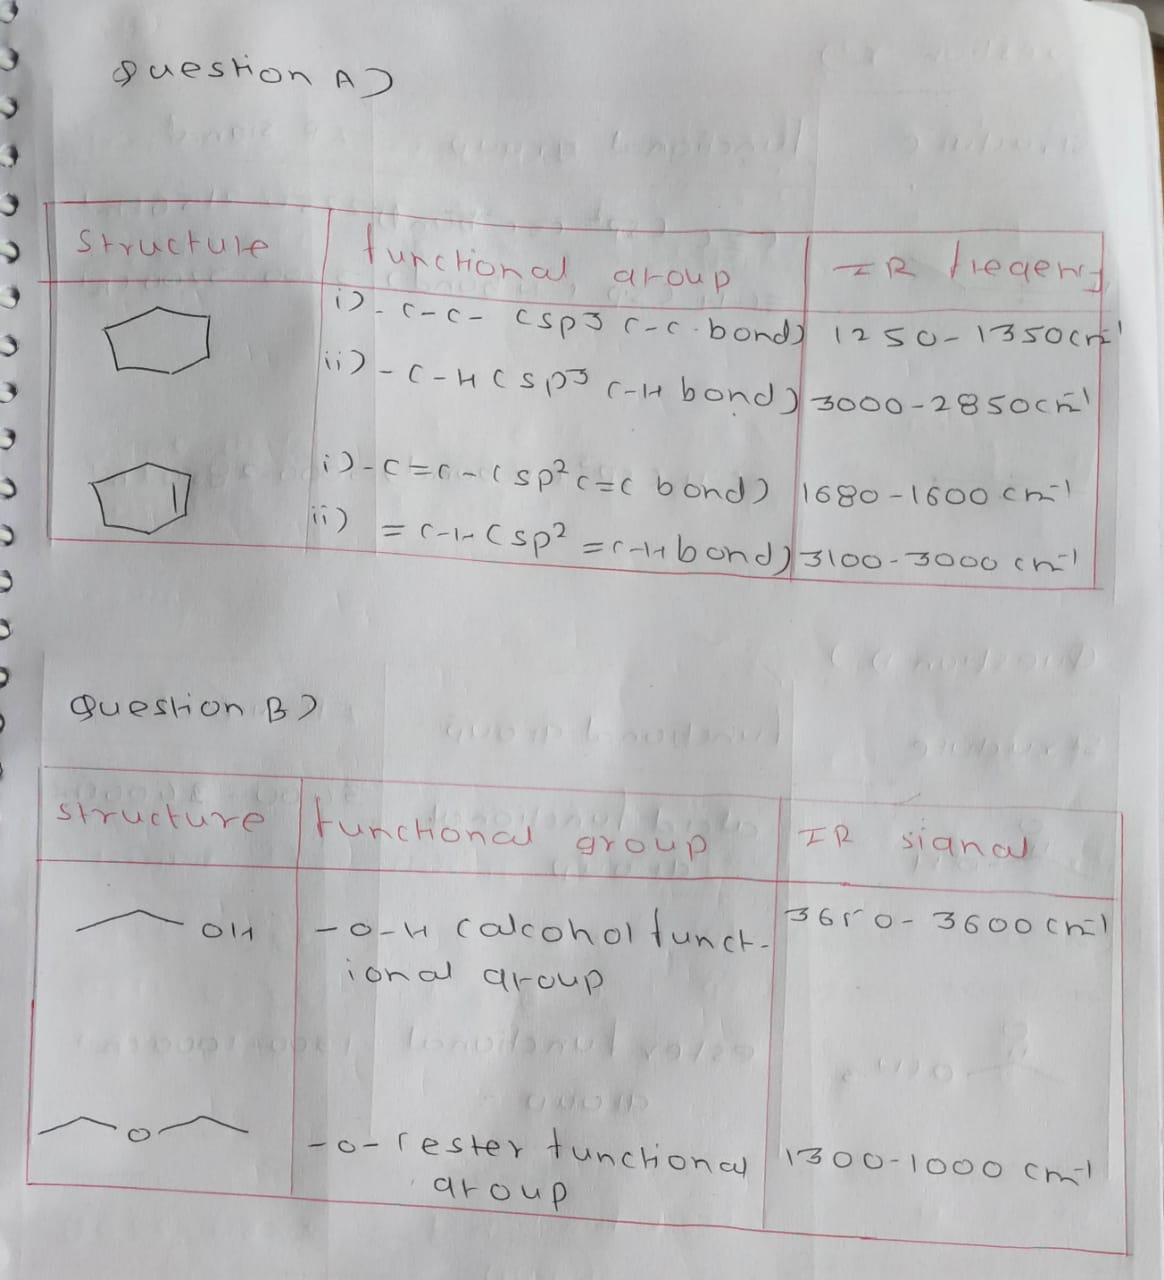 Question A)
structure functional group IR freqency
i) - C-C- (sp3 C-C bond) 1250-1350cm-1
ii) - C-H (sp3 C-H bond) 3000-2850cm-1
i) -C=C- (sp2 C=C bond) 1680-1600 cm-1
ii) =C-H (sp2 =C-H bond) 3100-3000 cm-1
Question B)
structure functional group IR signal
OH -O-H (alcohol funct- 3650-3600 cm-1
ional group
O -O- (ester functional 1300-1000 cm-1
group